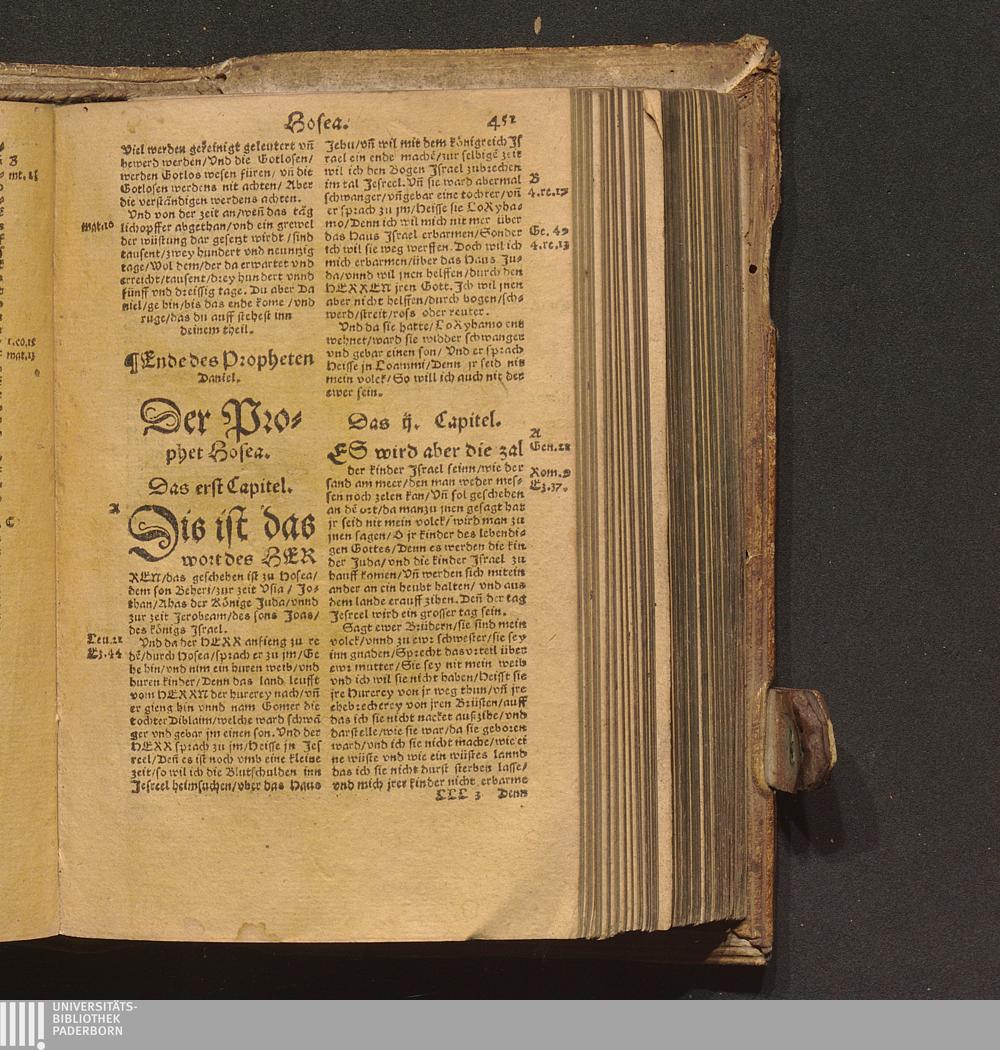 Hosea. 452
Viel werden gereinigt geleutert vñ
bewerd werden/Vnd die Gotlosen/
werden Gotlos wesen füren/ vñ die
Gotlosen werdens nit achten/ Aber
die verständigen werdens achten.
Vnd von der zeit an/weñ das täg
lichopffer abgethan/vnd ein grewel
der wüstung dar gesetzt wirdt/sind
tausent/zwey hundert vnd neuntzig
tage/Wol dem/der da erwartet vnd
erreicht/tausent/drey hundert vnnd
fünff vnd dreissig tage. Du aber Da
niel/ge hin/bis das ende kome/vnd
ruge/das du auff stehest inn
deinem theil.
¶Ende des Propheten
Daniel.
Der Pro⸗
phet Hosea.
Das erst Capitel.
A
Dis ist das
wort des HER
REN/das geschehen ist zu Hosea/
dem son Beheri/zur zeit Vsia/ Jo⸗
than/Ahas der Könige Juda/vnnd
zur zeit Jerobeam/des sons Joas/
des königs Israel.
Vnd da der HERR anfieng zu re
dē/durch Hosea/sprach er zu jm/Ge
he hin/vnd nim ein huren weib/vnd
huren kinder/Denn das land leufft
vom HERRN der hurerey nach/vñ
er gieng hin vnnd nam Gomer die
tochter Diblaim/welche ward schwā
ger vnd gebar jm einen son. Vnd der
HERR sprach zu jm/Heisse jn Jes
reel/Deñ es ist noch vmb eine kleine
zeit/so wil ich die Blutschulden inn
Jesreel heimsuchen/vber das Haus
Mat.10
Leu.21
Ez.44
Jehu/vñ wil mit dem königreich Is
rael ein ende machē/zur selbigē zeit
wil ich den Bogen Israel zubrechen
im tal Jesreel. Vñ sie ward abermal
schwanger/vñgebar eine tochter/vñ
er sprach zu jm/Heisse sie LoRyha⸗
mo/Denn ich wil mich nit mer über
das Haus Israel erbarmen/Sonder
ich wil sie weg werffen. Doch wil ich
mich erbarmen/über das Haus Ju⸗
da/vnnd wil jnen helffen/durch den
HERREN jren Gott. Ich wil jnen
aber nicht helffen/durch bogen/sch⸗
werd/streit/ross oder reuter.
Vnd da sie hatte/LoRyhamo ent
wehnet/ward sie widder schwanger
vnd gebar einen son/ Vnd er sprach
Heisse jn Loammi/Denn jr seid nit
mein volck/So will ich auch nit der
ewer sein.
Das ij. Capitel.
ES wird aber die zal
der kinder Israel seinn/wie der
sand am meer/den man weder mes⸗
sen noch zelen kan/Vñ sol geschehen
an dē ort/da manzu jnen gesagt hat
jr seid nit mein volck/wird man zu
jnen sagen/O jr kinder des lebendi⸗
gen Gottes/Denn es werden die kin
der Juda/vnd die kinder Israel zu
hauff komen/Vñ werden sich mitein
ander an ein heubt halten/ vnd aus
dem lande erauff zihen. Deñ der tag
Jesreel wird ein grosser tag sein.
Sagt ewer Brüdern/sie sind mein
volck/vnnd zu ewr schwester/sie sey
inn gnaden/Sprecht das vrteil über
ewr mutter/Sie sey nit mein weib
vnd ich wil sie nicht haben/Heisst sie
jre Hurerey von jr weg thun/vñ jre
ehebrecherey von jren Brüsten/auff
das ich sie nicht nacket auszihe/vnd
darstelle/wie sie war/da sie geboren
ward/vnd ich sie nicht mache/wie ei
ne wüste vnd wie ein wüstes lannd
das ich sie nicht durst sterben lasse/
vnd mich jrer kinder nicht erbarme
LLL 3 Denn
B
4.re.15
Ge. 49
4.re.13
A
Gen.28
Rom.9
Ez.37.
B
C
UNIVERSITÄTS-
BIBLIOTHEK
PADERBORN